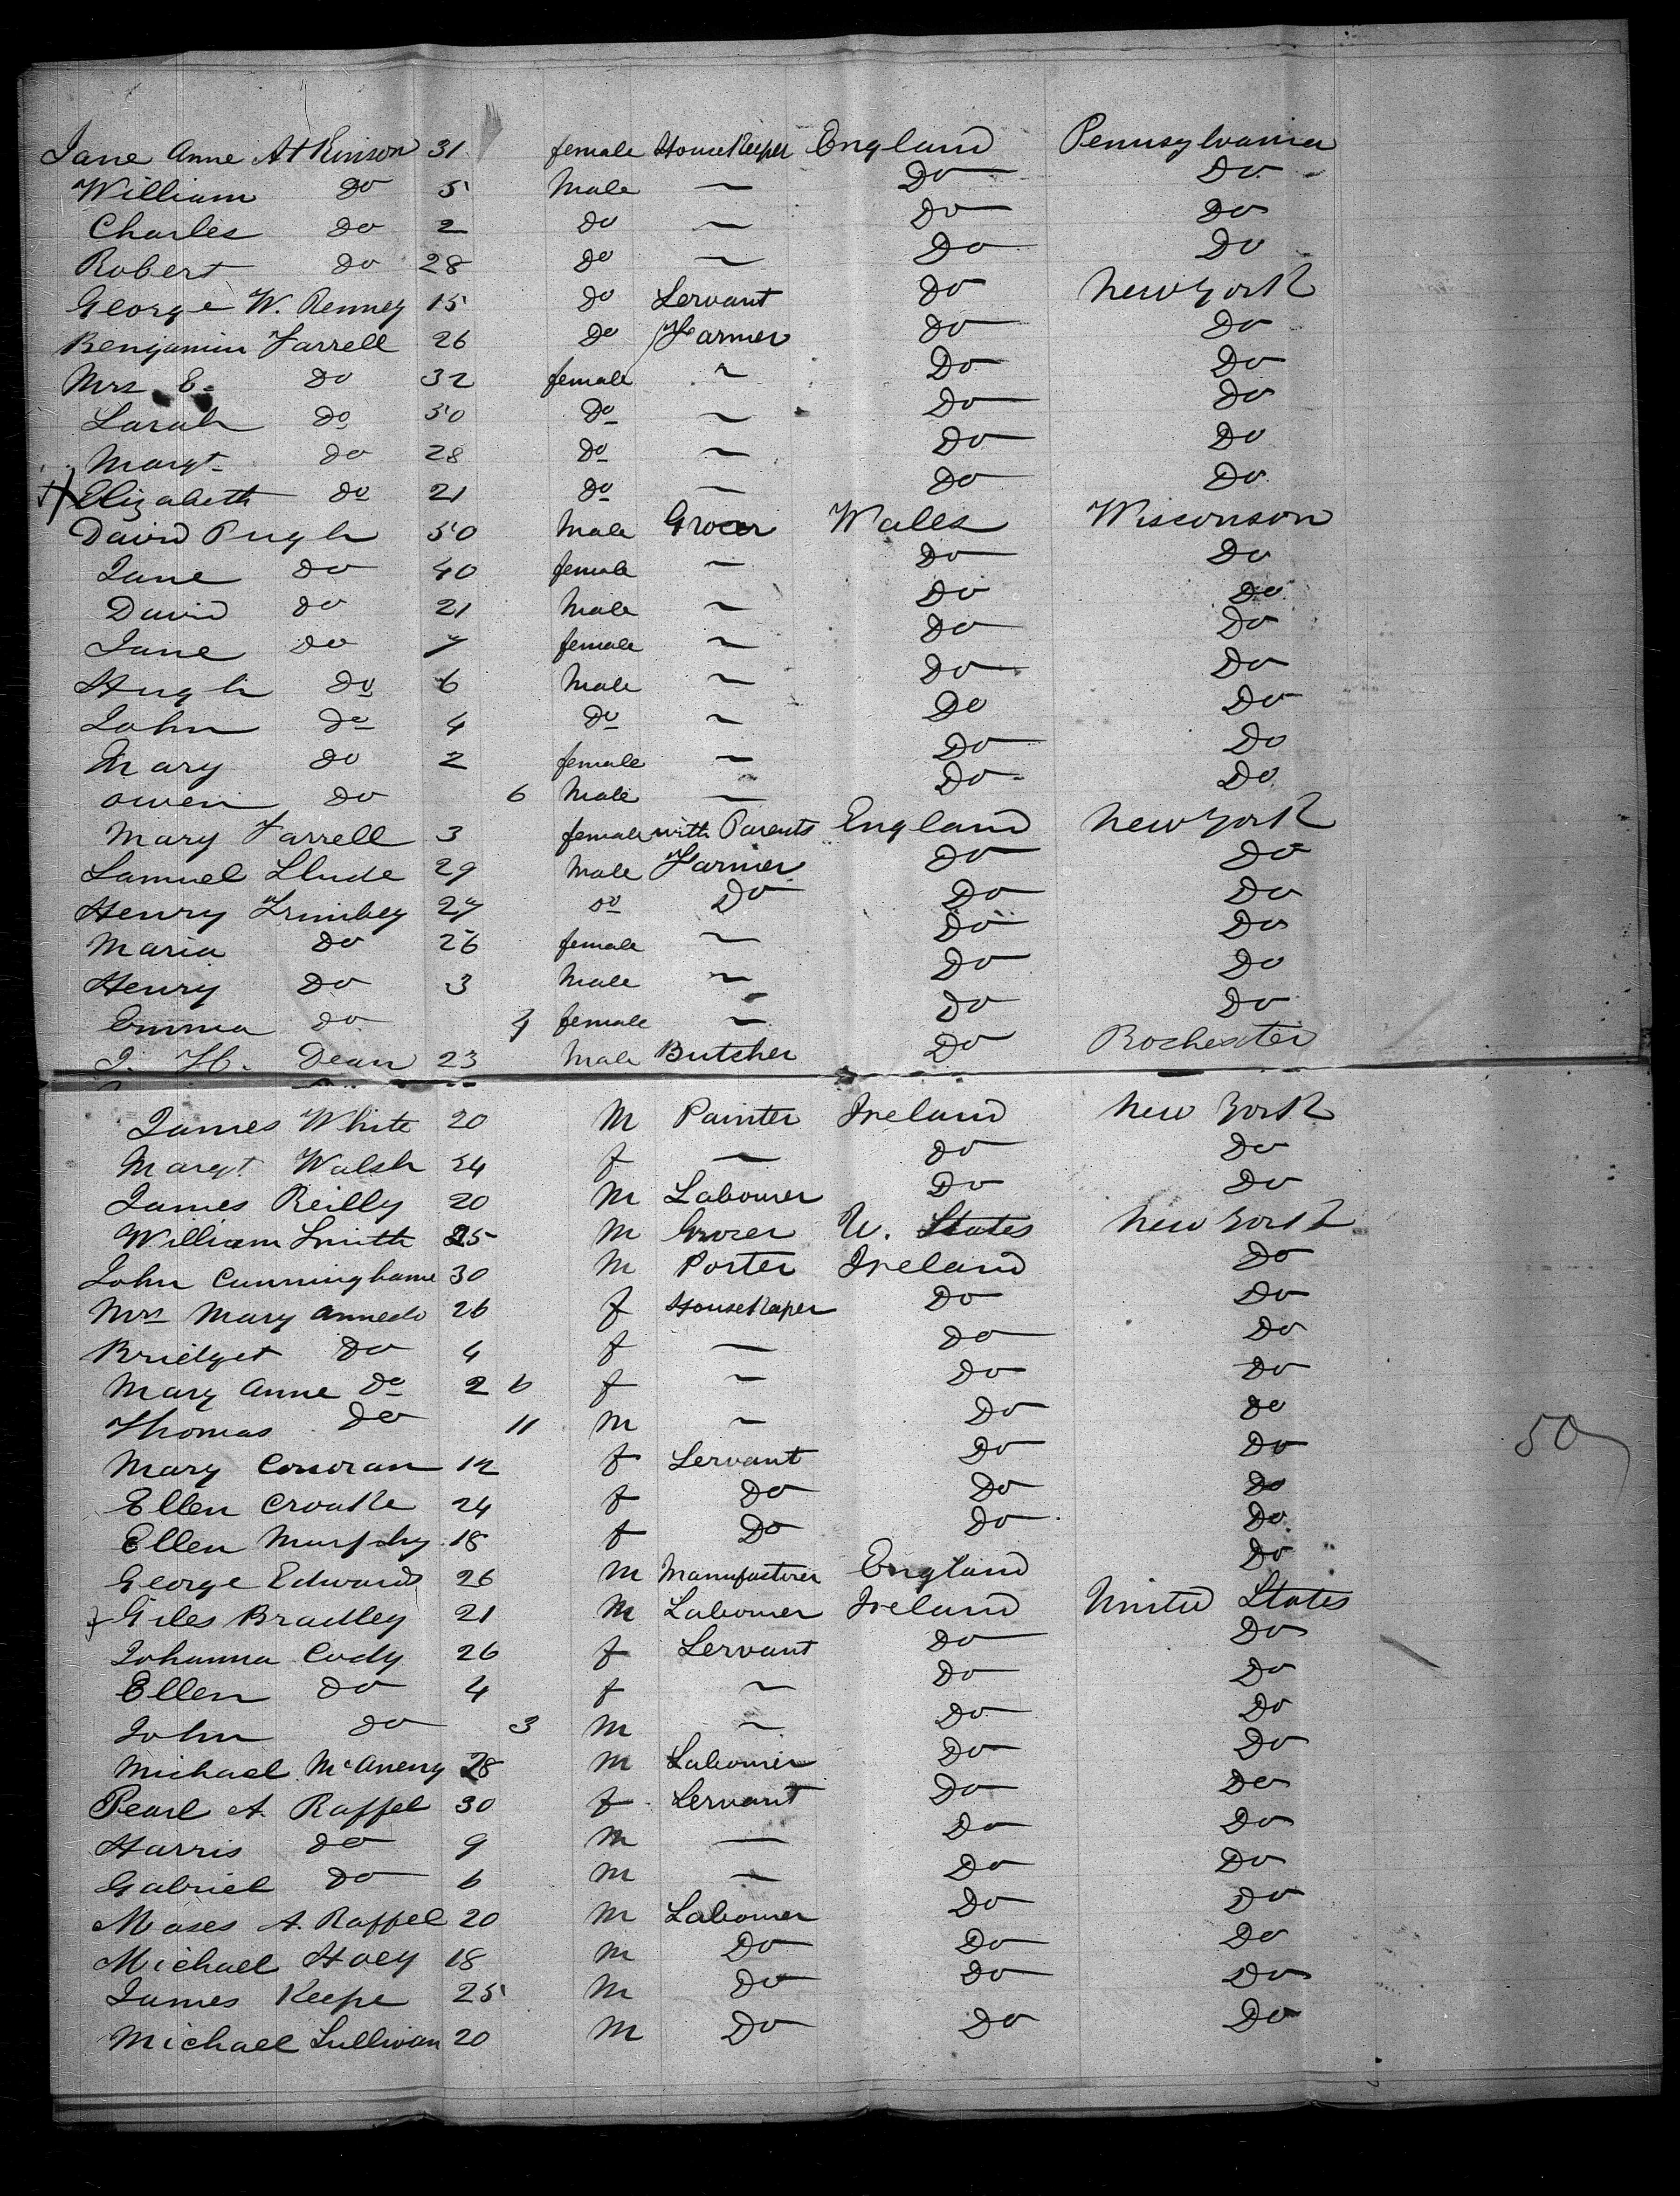 Jane Anne Atkinson 31 female HouseKeeper England Pennsylvania
William Do 5 Male ~ Do Do
Charles Do 2 Do ~ Do Do
Robert Do 28 Do ~ Do Do
George W. Renney 15 Do Servant Do New York
Benjamin Farrell 26 Do Farmer Do Do
Mrs E. Do 32 female ~ Do Do
Sarah Do 30 Do ~ Do Do
Margt. Do 28 Do ~ Do Do
Elizabeth Do 21 Do ~ Do Do
David Pugh 50 Male Grocer Wales Wisconson
Jane Do 40 female ~ Do Do
David Do 21 Male ~ Do Do
Jane Do 7 female ~ Do Do
Hugh Do 6 Male ~ Do Do
John Do 4 Do ~ Do Do
Mary Do 2 female ~ Do Do
Owen Do 6 Male ~ Do Do
Mary Farrell 3 female with Parents England New York
Samuel 29 Male Farmer Do Do
Henry Trimbey 27 Do Do Do Do
Maria Do 26 female ~ Do Do
Henry Do 3 Male ~ Do Do
Emma Do female ~ Do Do
J. H. Dean 23 Male Butcher Do Rochester
James White 20 M Painter Ireland New York
Margt. Walsh 24 f ~ Do Do
James Reilly 20 M Labourer Do Do
William Smith 25 M Grocer U. States New York
John Cunninghame 30 M Porter Ireland Do
Mrs Mary Anne do 26 f HouseKeeper Do Do
Bridget Do 4 f ~ Do Do
Mary Anne Do 2 6 f ~ Do Do
Thomas Do 11 M ~ Do Do
Mary Corcoran 12 f Servant Do Do
Ellen Croake 24 f Do Do Do
Ellen Murphy 18 f Do Do Do
George Edwards 26 M Manufacturer England Do
Giles Bradley 21 M Labourer Ireland United States
Johanna Cody 26 f Servant Do Do
Ellen Do 4 f ~ Do Do
John Do 3 M ~ Do Do
Michael McAneny 28 M Labourer Do Do
Pearl A. Raffel 30 f Servant Do Do
Harris Do 9 M ~ Do Do
Gabriel Do 6 M ~ Do Do
Moses A. Raffel 20 M Labourer Do Do
Michael Hoey 18 M Do Do Do
James Keefe 25 M Do Do Do
Michael Sullivan 20 M Do Do Do
50